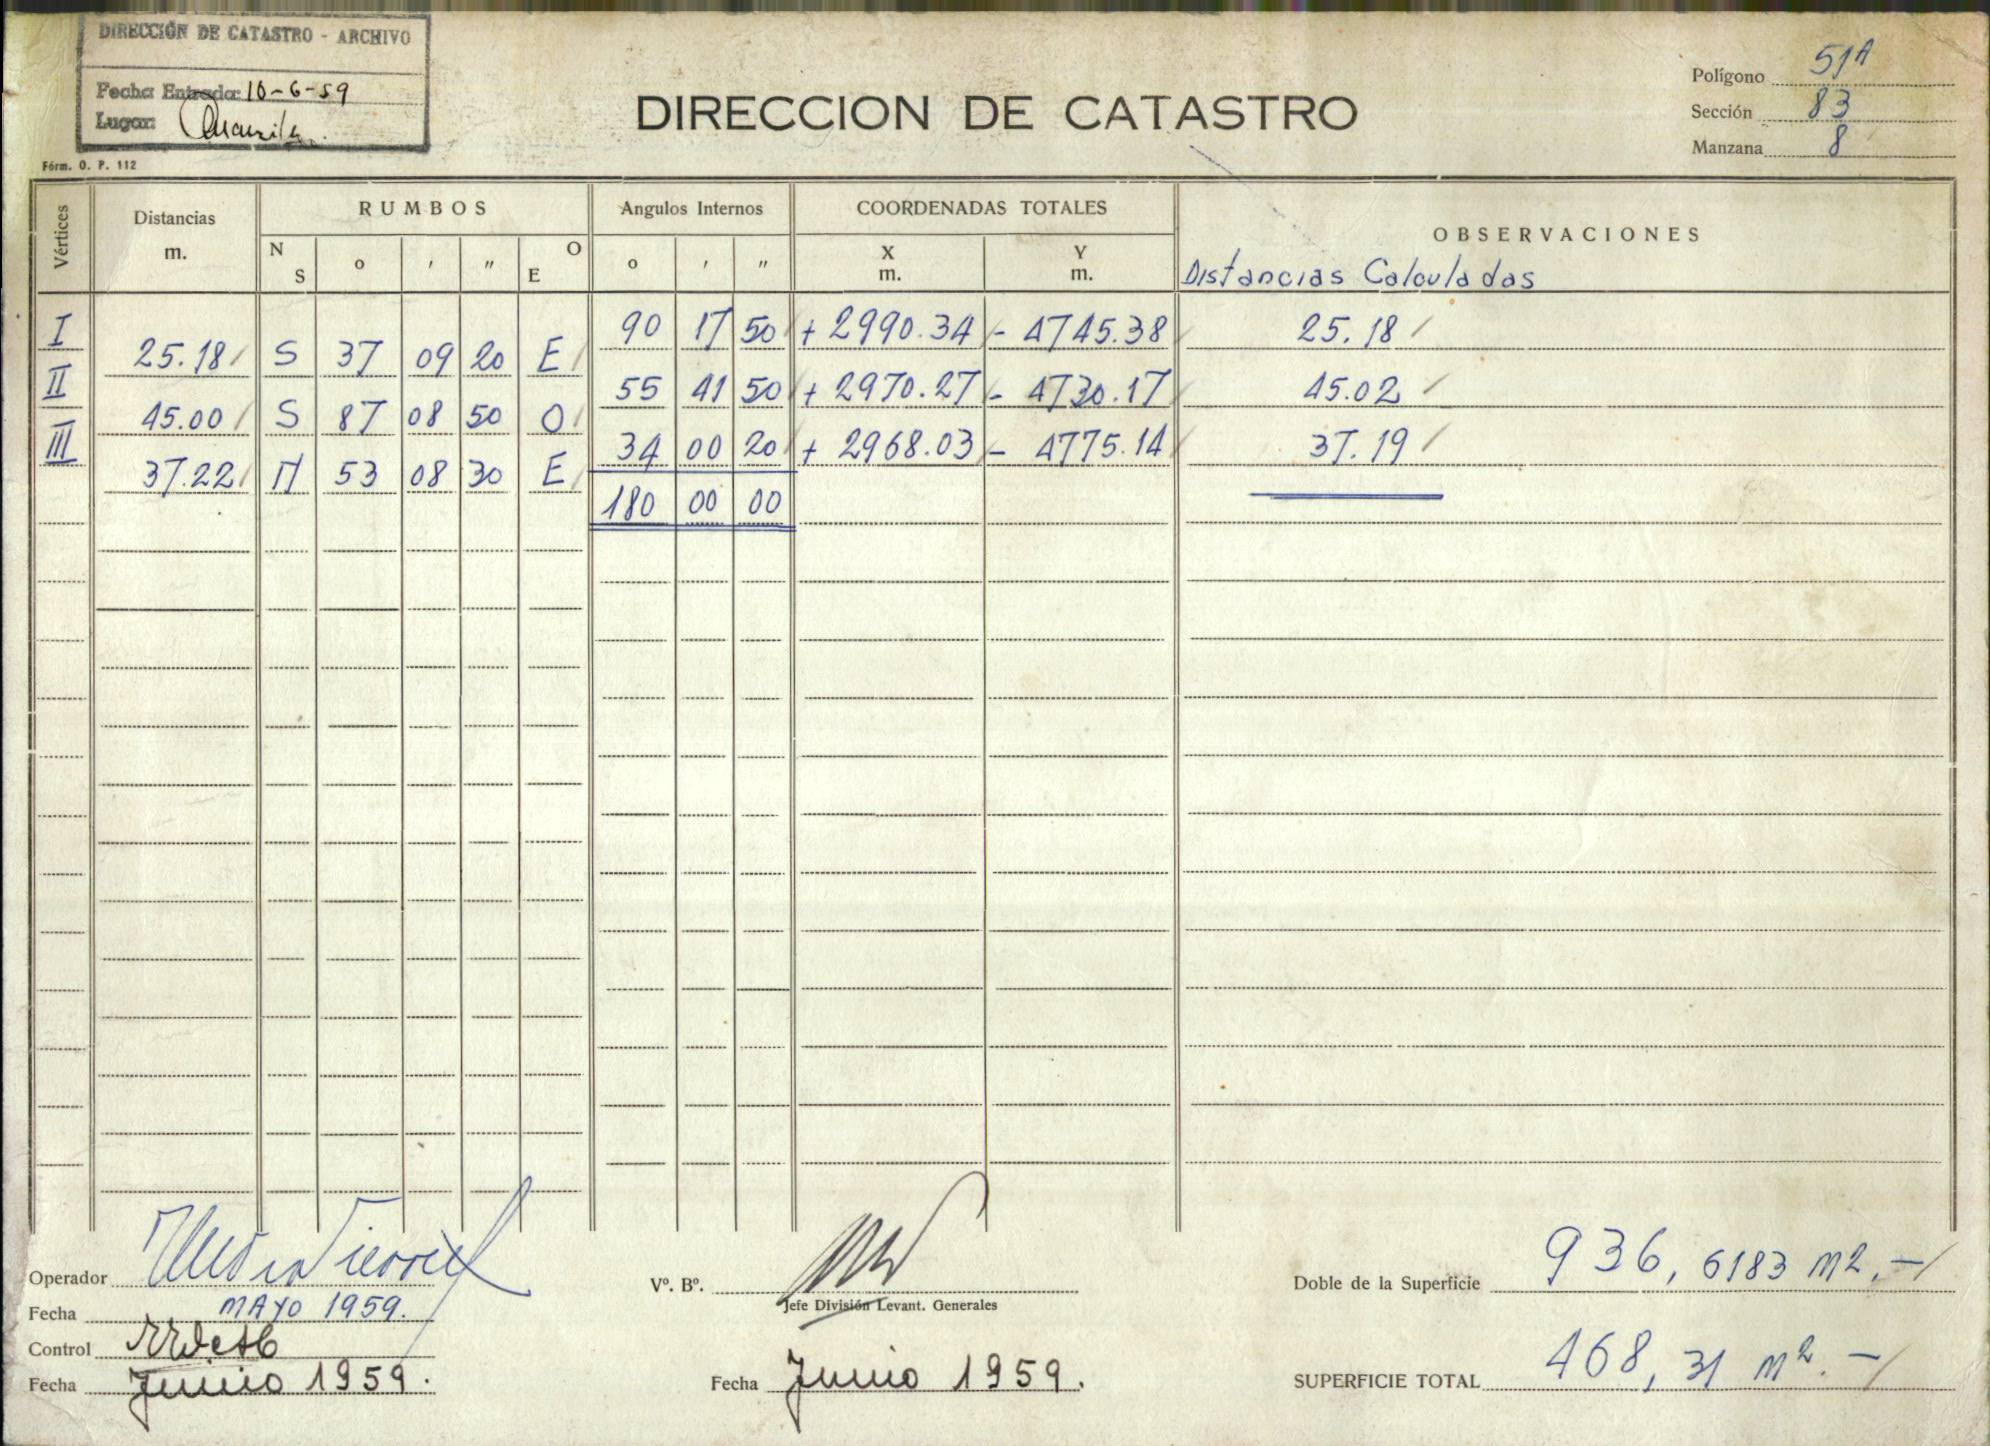 DIRECCIÓN DE CATASTRO - ARCHIVO
Fecha Entrada: 10-6-59
Lugar:
Fórm. O. P. 112
DIRECCION DE CATASTRO
Polígono 51A
Sección 83
Manzana 8
Vértices Distancias m. RUMBOS N S o ' " O E Angulos Internos o ' " COORDENADAS TOTALES X m. Y m. OBSERVACIONES
Distancias Calculadas
I 90 17 50 + 2990.34 - 4745.38 25.18
25.18 S 37 09 20 E
II 55 41 50 + 2970.27 - 4730.17 45.02
45.00 S 87 08 50 O
III 34 00 20 + 2968.03 - 4775.14 37.19
37.22 N 53 08 30 E
180 00 00
Operador
Fecha MAYO 1959.
Control
Fecha Junio 1959.
Vº. Bº.
Jefe División Levant. Generales
Fecha Junio 1959.
Doble de la Superficie 936,6183 m2.-
SUPERFICIE TOTAL 468,31 m2.-